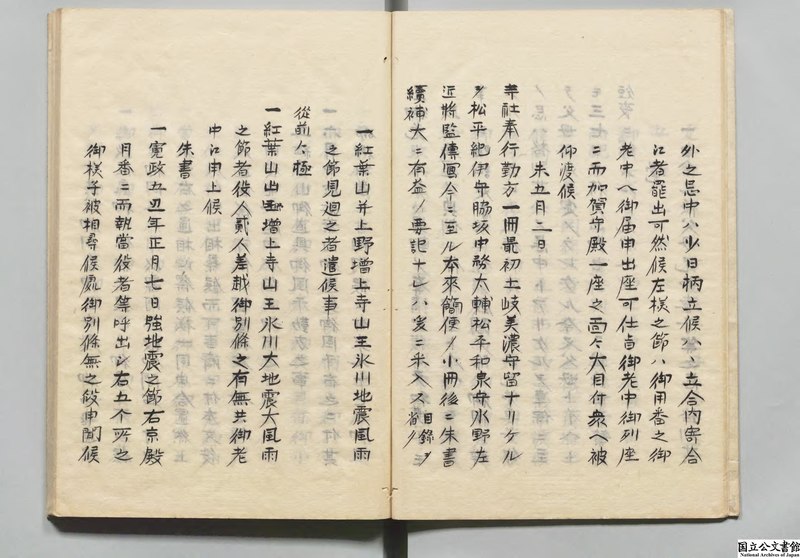 外之忌中ハ少日柄立候ハヽ立合内寄合
江者罷出可然候左様之節ハ御用番之御
老中へ御届申出座可仕旨御老中御列座
ニ而加賀守殿一座之面々大目付衆へ被
仰渡候
未五月二日
寺社奉行勤方一冊最初土岐美濃守留ナリケル
ヲ松平紀伊守脇坂中務太輔松平和泉守水野左
近将監傳冩今ニ至ル本来簡便ノ小冊後ニ朱書
續補大ニ有益ノ要記ナレハ爰ニ采入ス目録ヲ省ク
一紅葉山并上野増上寺山王氷川地震風雨
之節見廻之者遣候事
從前々極
一紅葉山上野増上寺山王氷川大地震大風雨
之節者役人貳人差越御別條之有無共御老
中江申上候
朱書
一寛政五丑年正月七日強地震之節右京殿
月番ニ而執當役者等呼出シ右五个所之
御様子被相尋候處御別條無之段申聞候
国立公文書館
National Archives of Japan